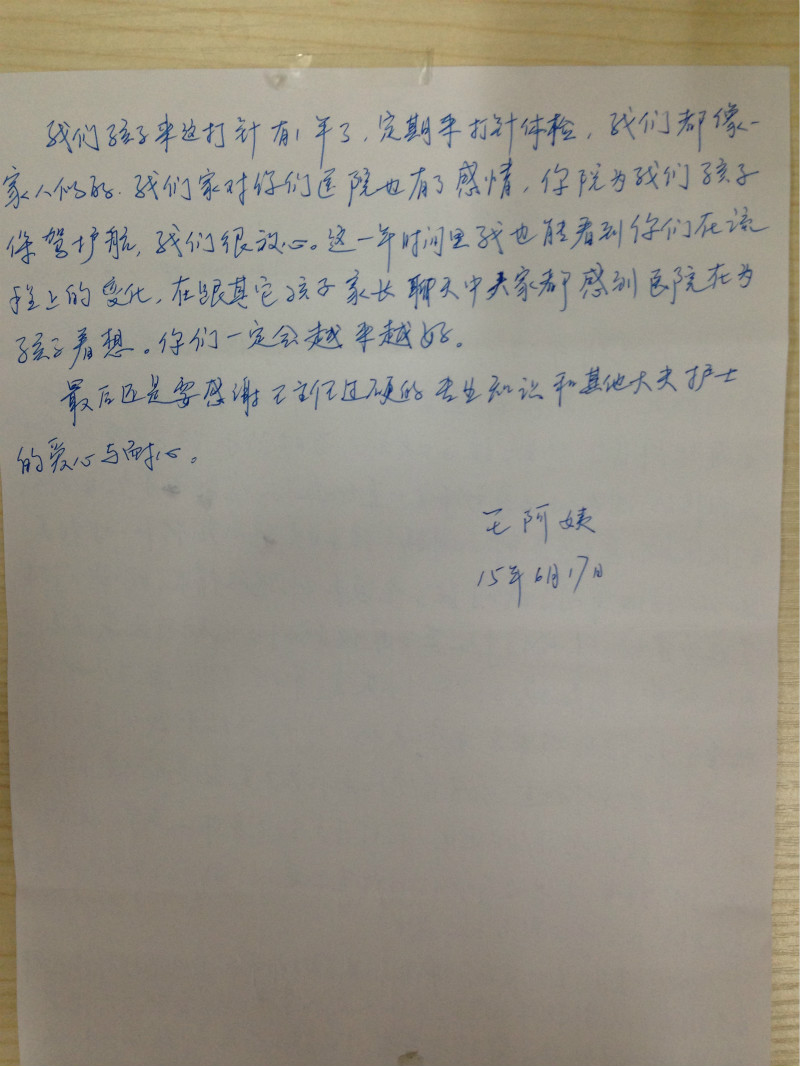 我们孩子来这打针有1年了,定期来打针体检,我们都像一
家人似的.我们家对你们医院也有了感情,你院为我们孩子
保驾护航,我们很放心。这一年时间里我也能看到你们在流
程上的变化,在跟其它孩子家长聊天中大家都感到医院在为
孩子着想。你们一定会越来越好。
最后还是要感谢王主任过硬的专业知识和其他大夫护士
的爱心与耐心。
王阿姨
15年6月17日